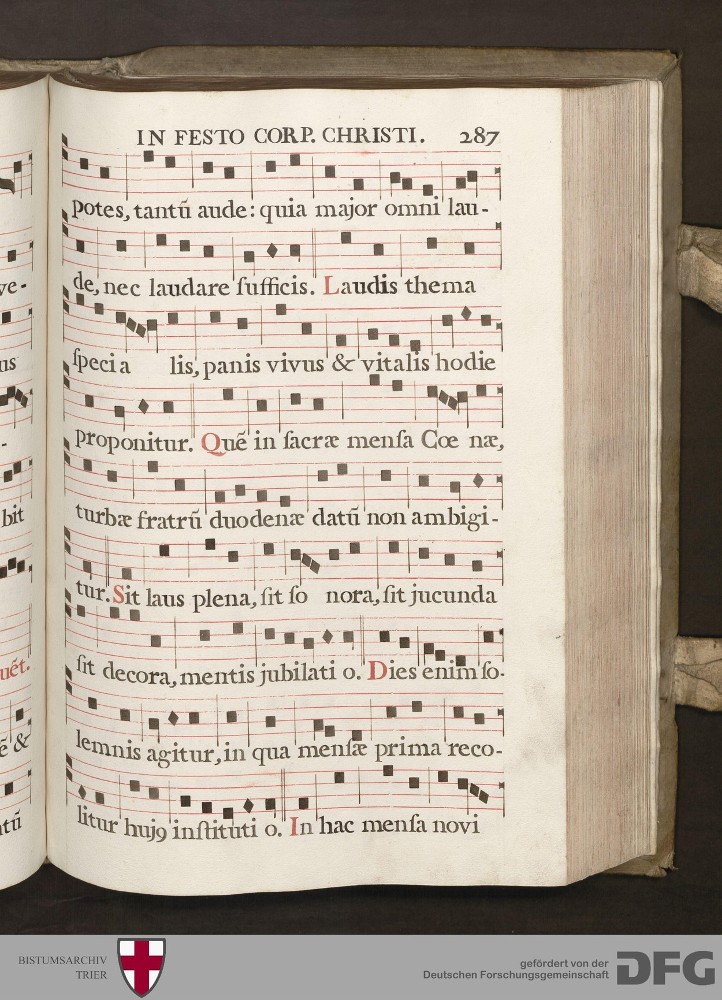 IN FESTO CORP. CHRISTI. 287
potes, tantū aude: quia major omni lau-
de, nec laudare ſufficis. Laudis thema
ſpecia lis, panis vivus & vitalis hodie
proponitur. Quē in ſacræ menſa Cœ næ,
turbæ fratrū duodenæ datū non ambigi-
tur. Sit laus plena, ſit ſo nora, ſit jucunda
ſit decora, mentis jubilati o. Dies enim ſo-
lemnis agitur, in qua menſæ prima reco-
litur huj9 inſtituti o. In hac menſa novi
ve-
us
-
bit
uēt.
ē &
tū
BISTUMSARCHIV
TRIER
gefördert von der
Deutschen Forschungsgemeinschaft
DFG